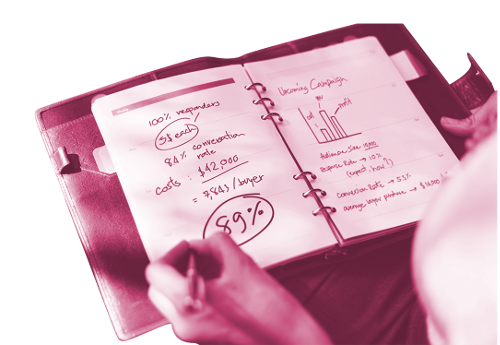 100% responders
3$ each
84% conversation
rate
costs: $42,000
= 7,843 / buyer
89%
Upcoming Campaign
Audience size
Response Rate → 10%
(expect. how?)
conversion Rate → 53%
average buyer purchase →